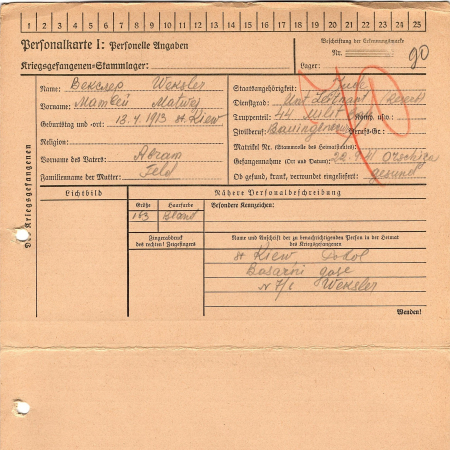 1 2 3 4 5 6 7 8 9 10 11 12 13 14 15 16 17 18 19 20 21 22 23 24 25
Personalkarte I: Personelle Angaben
Kriegsgefangenen-Stammlager:
Beschriftung der Erkennungsmarke
Nr.
Lager:
90
Des Kriegsgefangenen
Name: Векслер Weksler
Vorname: Матвей Matwej
Geburtstag und -ort: 13.4.1913 st. Kiew
Religion:
Vorname des Vaters: Abram
Familienname der Mutter: Feld
Staatsangehörigkeit: Jude
Dienstgrad: Unt. Leitnant
Truppenteil: 44 Komp. usw.:
Zivilberuf: Bauingenieur Berufs-Gr.:
Matrikel Nr. (Stammrolle des Heimatstaates):
Gefangennahme (Ort und Datum): 22.9.41 Orschiza
Ob gesund, krank, verwundet eingeliefert: gesund
Lichtbild
Nähere Personalbeschreibung
Größe Haarfarbe
163 Blond
Besondere Kennzeichen:
Fingerabdruck
des rechten! Zeigefingers
Name und Anschrift der zu benachrichtigenden Person in der Heimat
des Kriegsgefangenen
st Kiew Podol
Basarni gase
N 7/1 Weksler
Wenden!